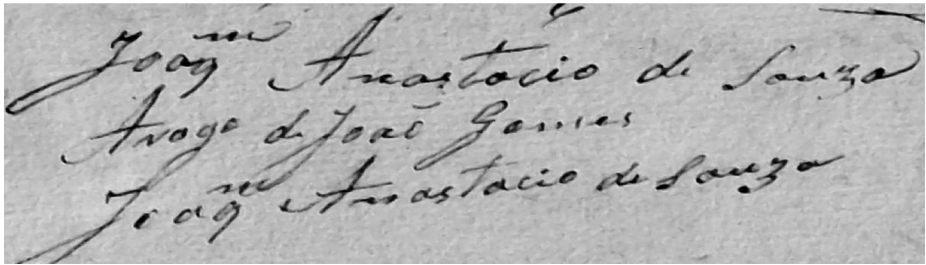 Joaqm Anastacio de Souza
Arogo de João Gomes
Joaqm Anastacio de Souza